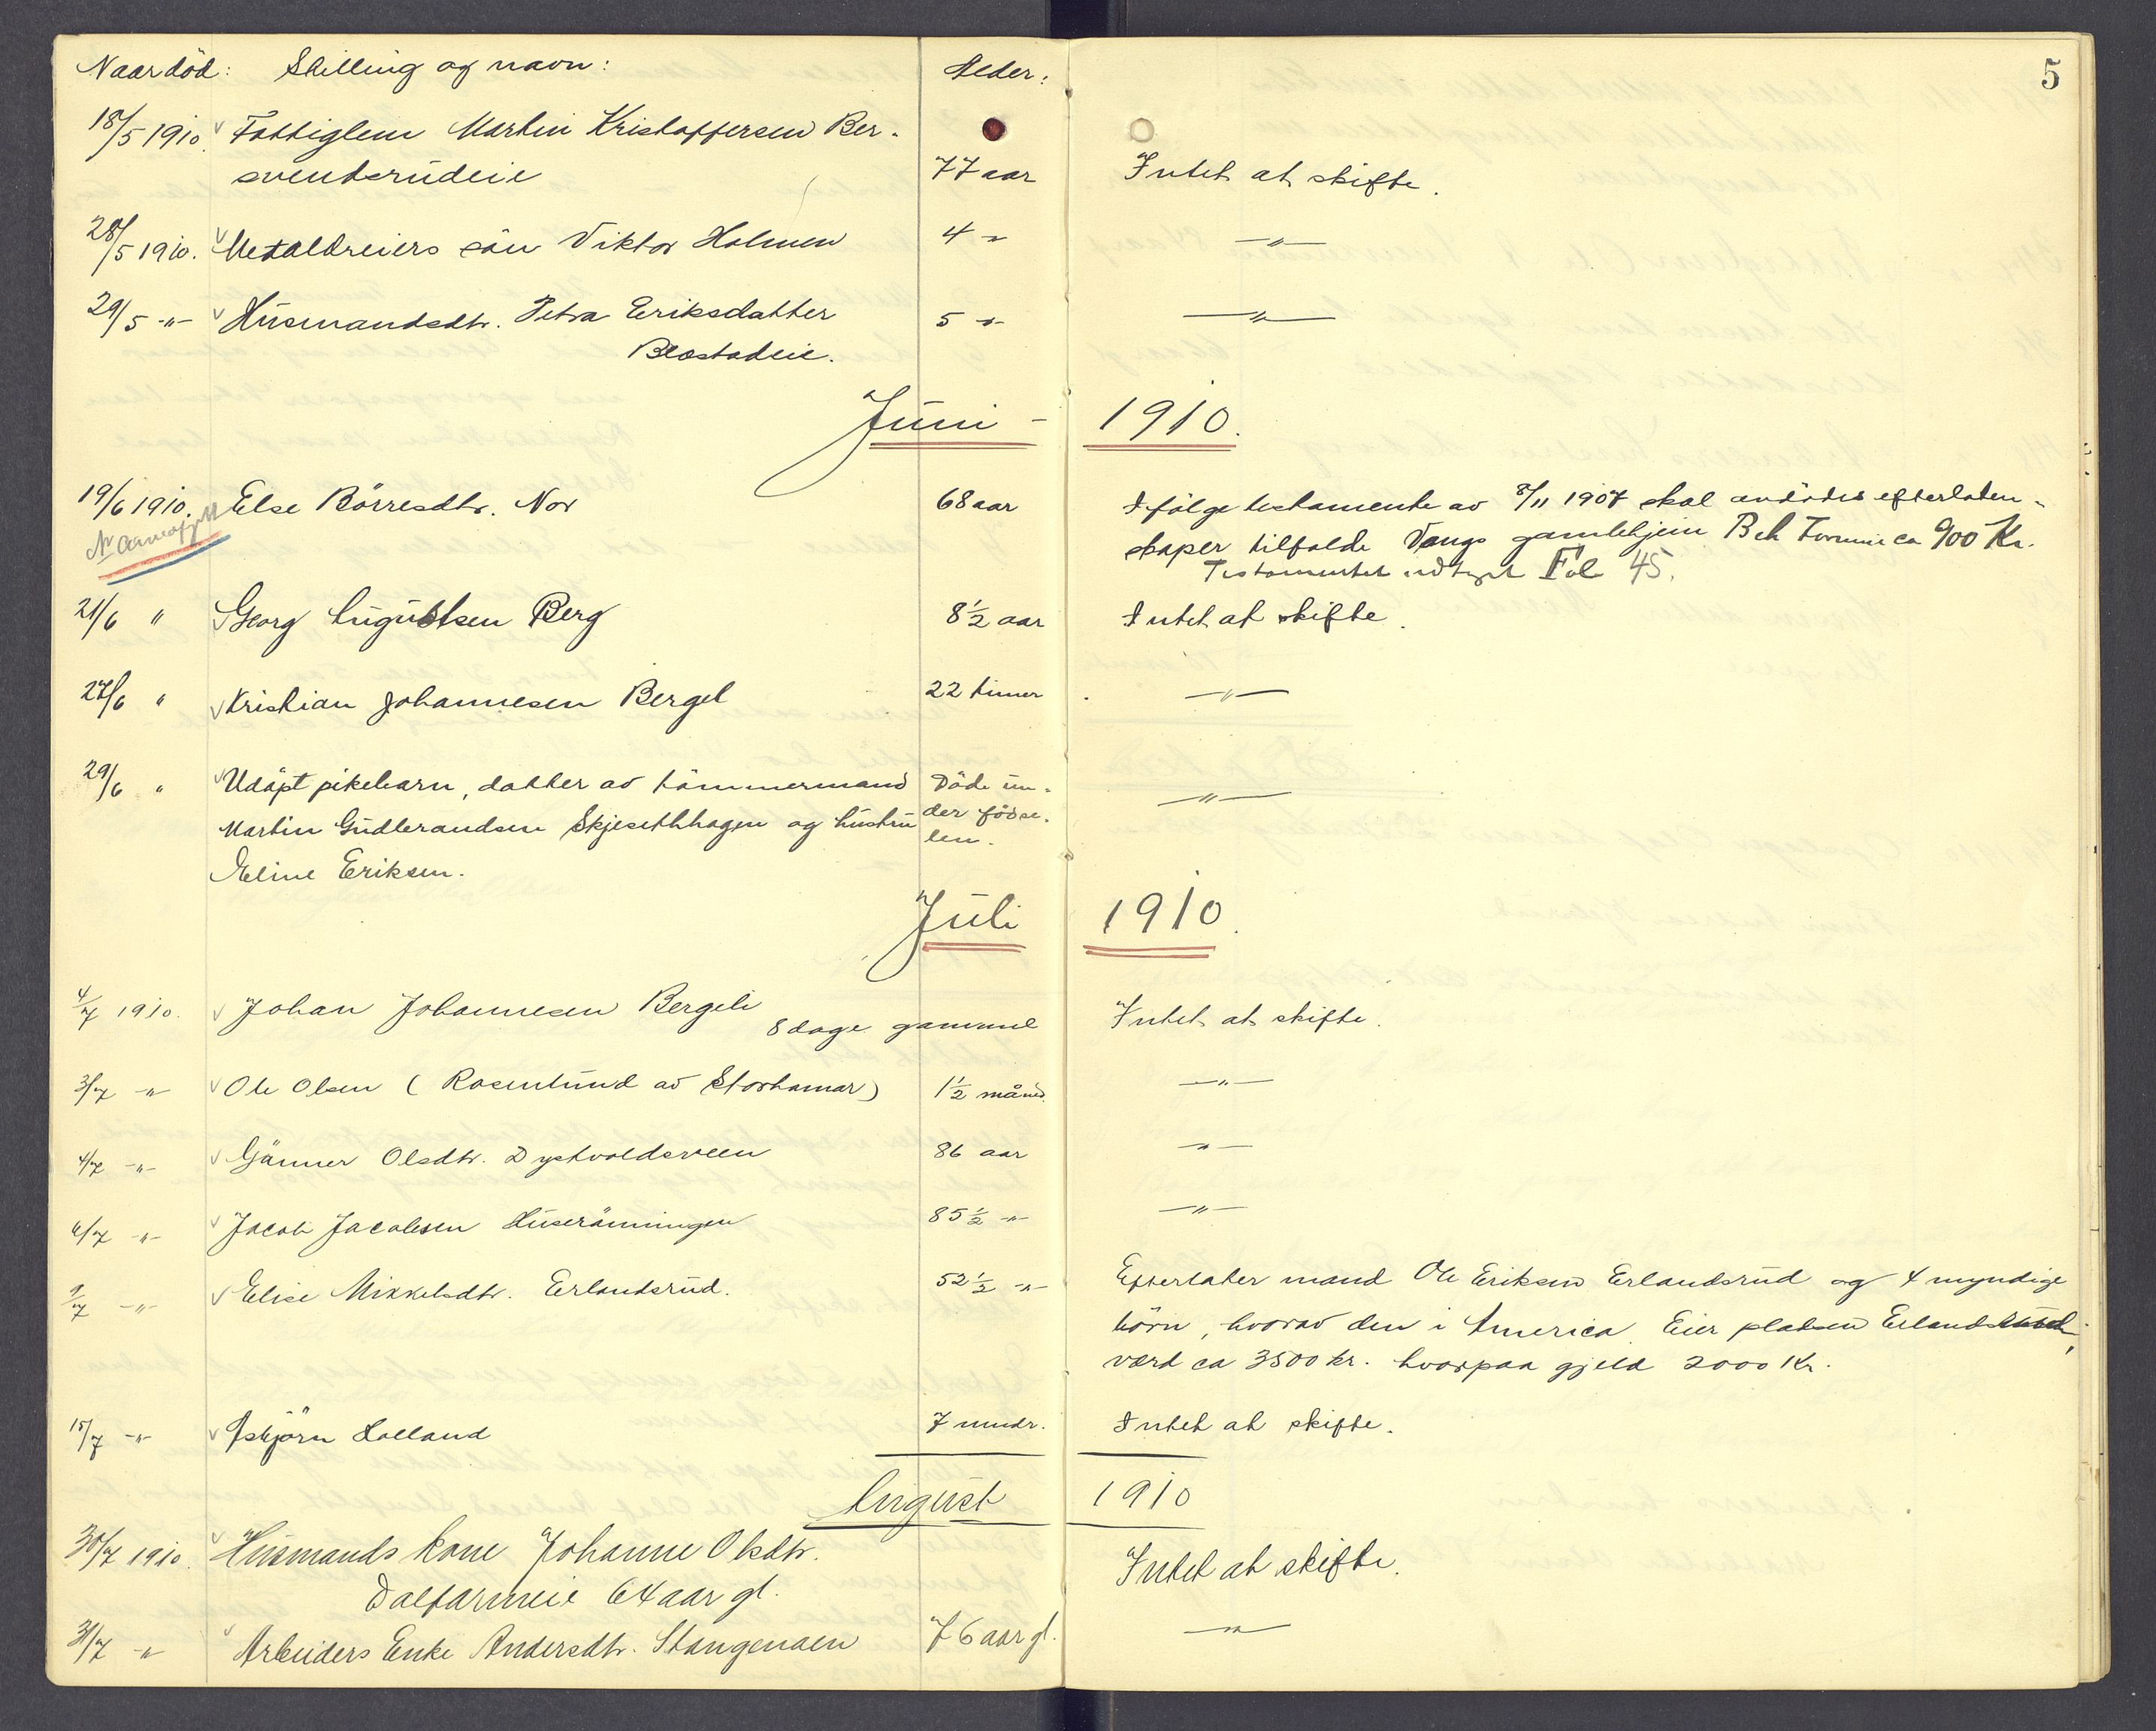 Naar död: Stilling og navn: Alder:
5
18/5 1910. Fattiglem Martin Kristoffersen Ber-
sventsrudeie 77 aar Intet at skifte.
28/5 1910. Metaldreiers sön Viktor Holmen 4 " —"—
29/5 -"- Husmandsdtr. Petra Eriksdatter 5 -"- —"—
Blæstadeie.
Juni - 1910.
19/6 1910. Else Börresdtr. Nor 68 aar Ifölge testamente av 8/11 1907 skal avdödes efterladen-
skaper tilfalde Vangs gamlehjem Beh Formue ca 900 Kr.
Testamentet Fol 45.
21/6 " Georg Augustsen Berg 8 1/2 aar Intet at skifte.
27/6 " Kristian Johannesen Bergel 22 timer —"—
29/6 " Udöpt pikebarn, datter av tömmermand Döde un-
Martin Gudbrandsen Skjesethhagen og hustru der födse-
len. —"—
Eline Eriksen.
Juli 1910.
4/7 1910. Johan Johannesen Bergeli
8 dage gammel Intet at skifte.
3/7 -"- Ole Olsen (Rosenlund av Storhamar) 1 1/2 måned. —"—
4/7 -"- Gunner Olsdtr. Dystvoldsveen 86 aar —"—
6/7 -"- Jacob Jacobsen Huserönningen 85 1/2 -"- —"—
9/7 -"- Elise Mikkelsdtr. Erlandsrud. 52 1/2 -"- Efterlater mand Ole Eriksen Erlandsrud og 4 myndige
börn, hvorav den i America. Eier pladsen Erlandsrud,
værd ca 3500 kr. hvorpaa gjeld 2000 Kr.
15/7 -"- Asbjörn Holland 7 mndr. Intet at skifte.
August 1910
30/7 1910. Husmands kone Johanne Olsdtr.
Dalfarmeie 64 aar gl. Intet at skifte.
31/7 -"- Arbeiders Enke Andersdtr. Stangenaen 76 aar gl. —"—